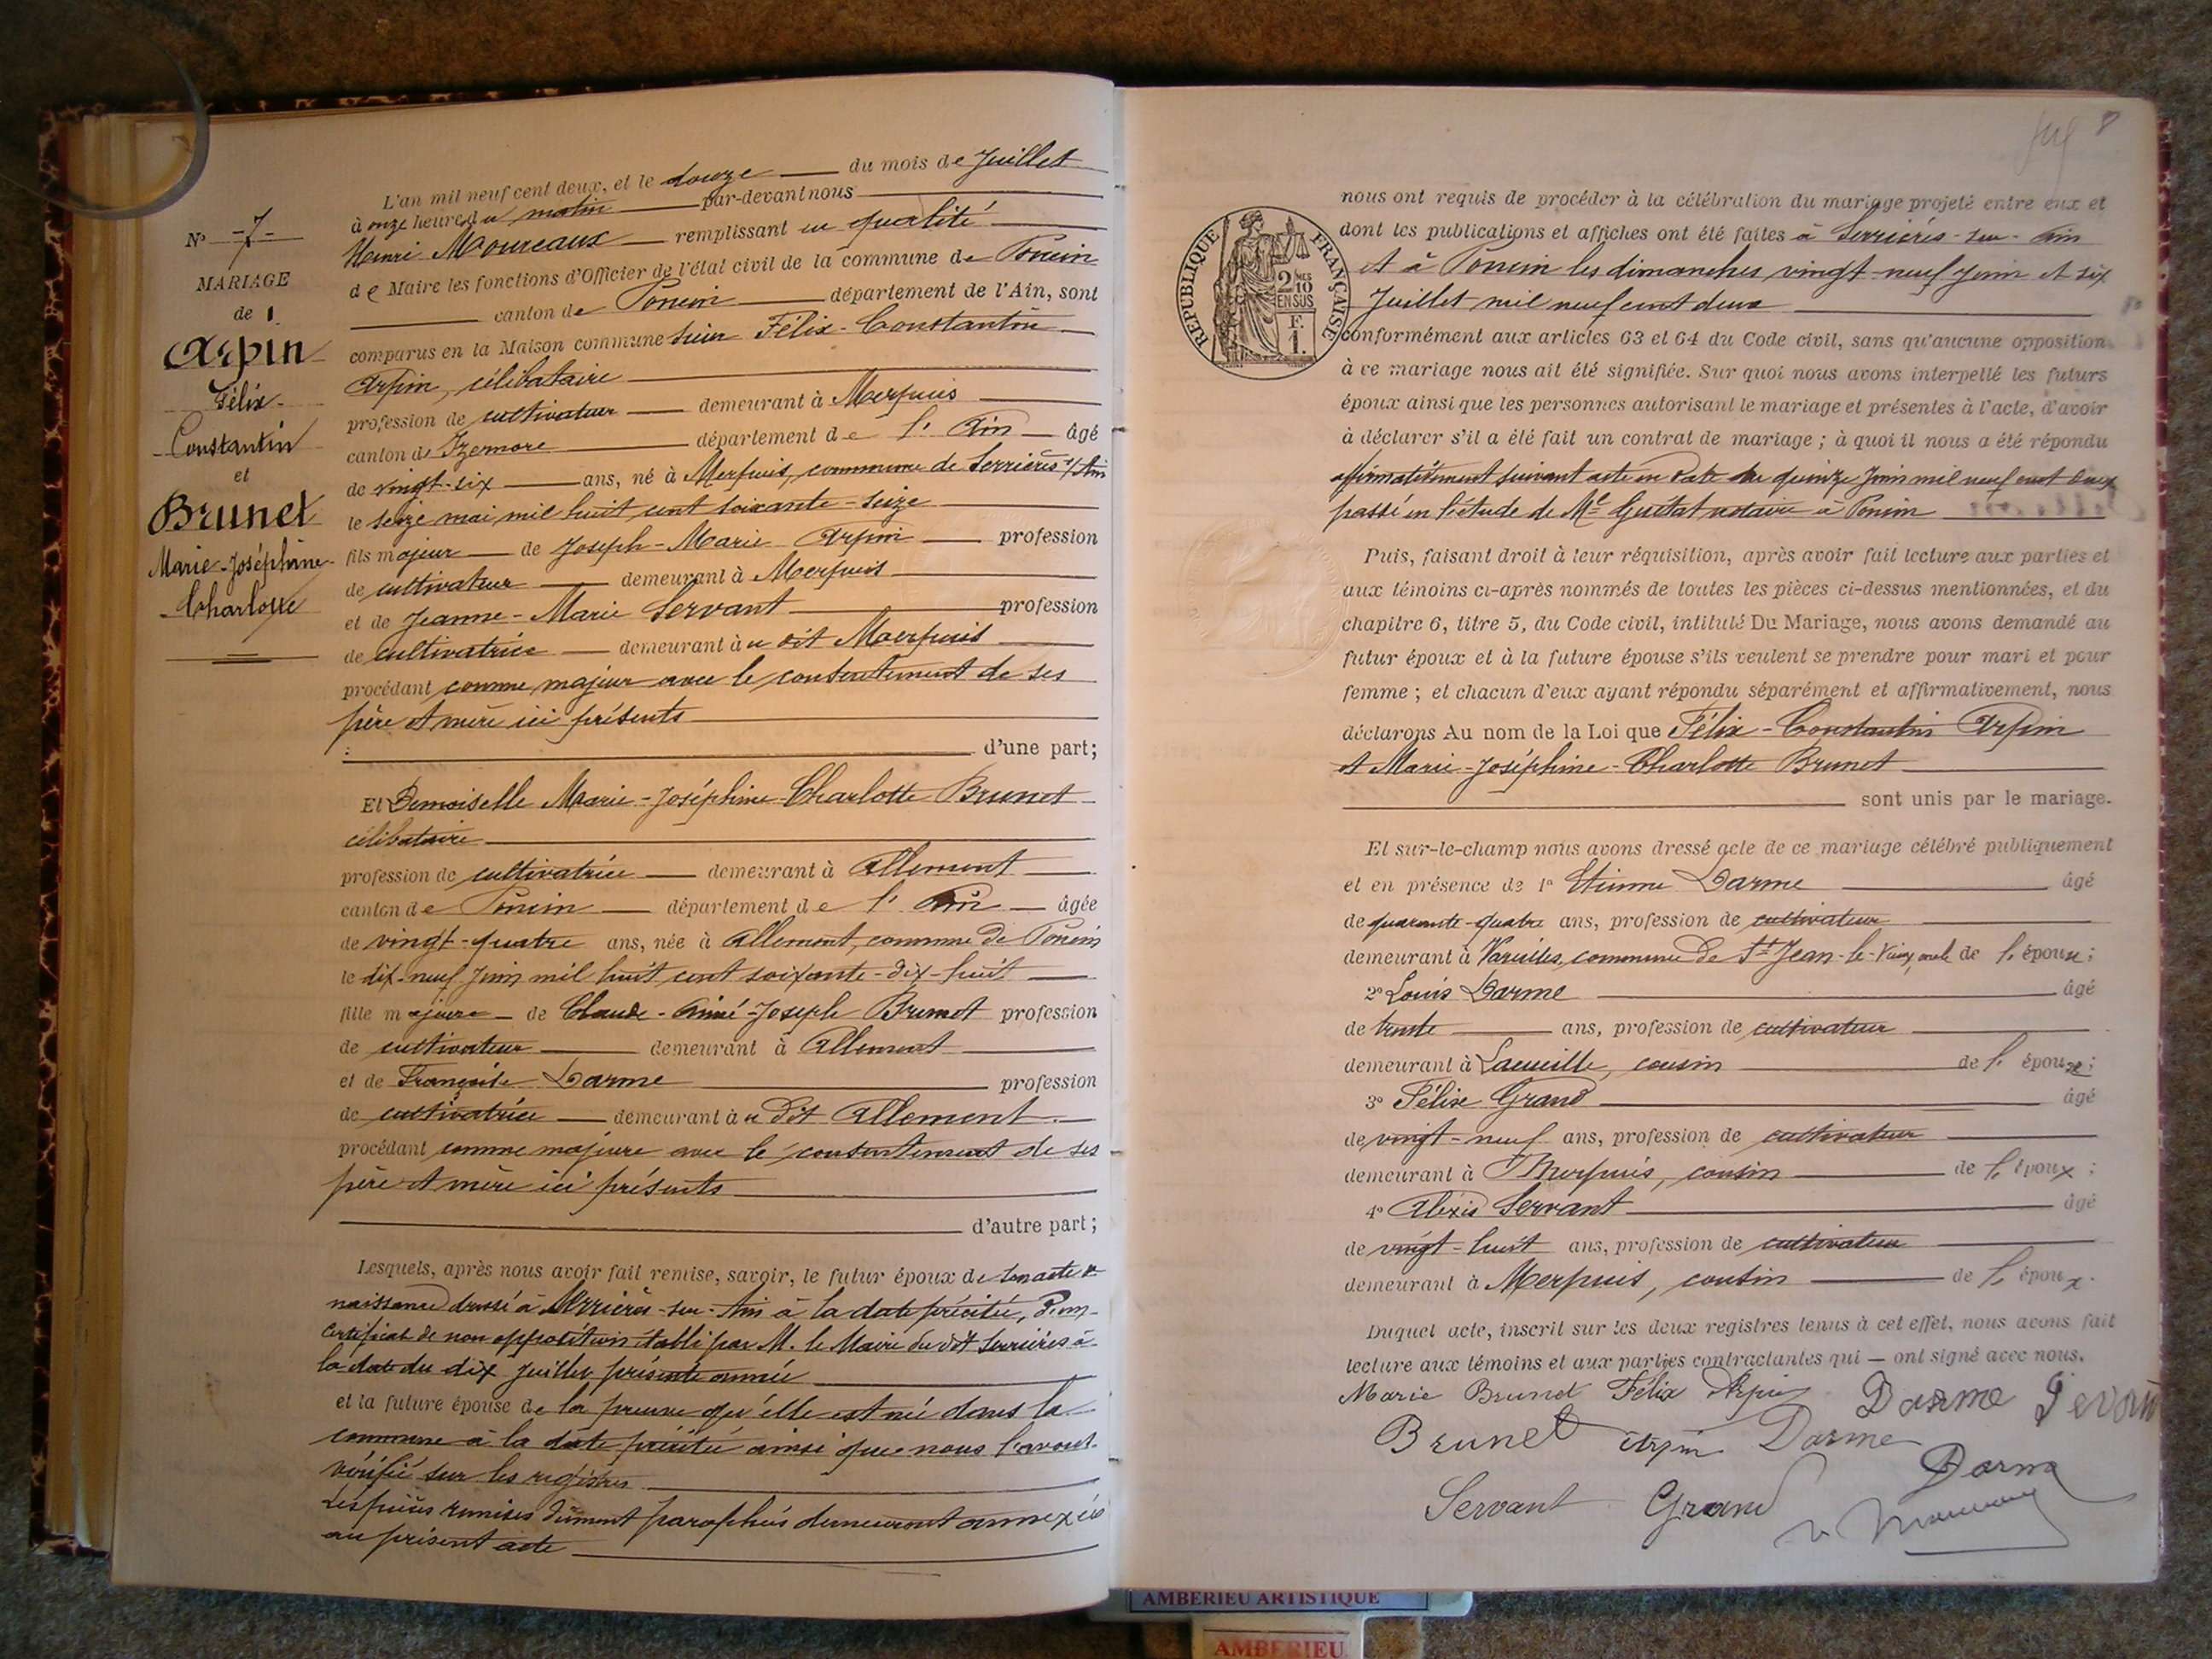 N° -7-
MARIAGE
de 1
Arpin
Félix-
Constantin
et
Brunet
Marie-Joséphine-
-Charlotte
L'an mil neuf cent deux, et le douze du mois de Juillet
à onze heures du matin par-devant nous
Henri Moureaux remplissant en qualité
de Maire les fonctions d'Officier de l'état civil de la commune de Poncin
canton de Poncin département de l'Ain, sont
comparus en la Maison commune sieur Félix-Constantin
Arpin, célibataire
profession de cultivateur demeurant à Merpuis
canton d'Izernore département de l'Ain âgé
de vingt-six ans, né à Merpuis, commune de Serrières s/Ain
le seize mai mil huit cent soixante-seize
fils majeur de Joseph-Marie Arpin profession
de cultivateur demeurant à Merpuis
et de Jeanne-Marie Servant profession
de cultivatrice demeurant àu dit Merpuis
procédant comme majeur avec le consentement de ses
père et mère ici présents
d'une part;
Et Demoiselle Marie-Joséphine-Charlotte Brunet
célibataire
profession de cultivatrice demeurant à Allement
canton de Poncin département de l'Ain âgée
de vingt-quatre ans, née à Allement, commune de Poncin
le dix-neuf Juin mil huit cent soixante-dix-huit
fille majeure de Claude-Aimé-Joseph Brunet profession
de cultivateur demeurant à Allement
et de Françoise Darme profession
de cultivatrice demeurant àu dit Allement.
procédant comme majeure avec le consentement de ses
père et mère ici présents
d'autre part;
Lesquels, après nous avoir fait remise, savoir, le futur époux de son acte de
naissance dressé à Serrières-sur-Ain à la date précitée, d'un
certificat de non opposition établi par M. le Maire du dit Serrières à
la date du dix Juillet présente année
et la future épouse de la preuve qu'elle est née dans la
commune à la date précitée ainsi que nous l'avons
vérifié sur les registres
Les pièces remises dûment paraphées demeuront annexées
au présent acte
8
REPUBLIQUE FRANÇAISE
2 MES
10
EN SUS
F.
1.
nous ont requis de procéder à la célébration du mariage projeté entre eux et
dont les publications et affiches ont été faites à Serrières-sur-Ain
et à Poncin les dimanches vingt-neuf Juin et six
Juillet mil neuf cent deux
conformément aux articles 63 et 64 du Code civil, sans qu'aucune opposition
à ce mariage nous ait été signifiée. Sur quoi nous avons interpellé les futurs
époux ainsi que les personnes autorisant le mariage et présentes à l'acte, d'avoir
à déclarer s'il a été fait un contrat de mariage ; à quoi il nous a été répondu
affirmativement suivant acte en date du quinze Juin mil neuf cent deux
passé en l'étude de Me Guétat notaire à Poncin
Puis, faisant droit à leur réquisition, après avoir fait lecture aux parties et
aux témoins ci-après nommés de toutes les pièces ci-dessus mentionnées, et du
chapitre 6, titre 5, du Code civil, intitulé Du Mariage, nous avons demandé au
futur époux et à la future épouse s'ils veulent se prendre pour mari et pour
femme ; et chacun d'eux ayant répondu séparément et affirmativement, nous
déclarons Au nom de la Loi que Félix-Constantin Arpin
et Marie-Joséphine-Charlotte Brunet
sont unis par le mariage.
Et sur-le-champ nous avons dressé acte de ce mariage célébré publiquement
et en présence de 1° Etienne Darme âgé
de quarante-quatre ans, profession de cultivateur
demeurant à Varielles, commune de St Jean-le-Vieux, oncle de l'épouse;
2° Louis Darme âgé
de trente ans, profession de cultivateur
demeurant à Lacueille, cousin de l'épouse;
3° Félix Grand âgé
de vingt-neuf ans, profession de cultivateur
demeurant à Merpuis, cousin de l'époux;
4° Alexis Servant âgé
de vingt-huit ans, profession de cultivateur
demeurant à Merpuis, cousin de l'époux.
Duquel acte, inscrit sur les deux registres tenus à cet effet, nous avons fait
lecture aux témoins et aux parties contractantes qui — ont signé avec nous.
Marie Brunet Félix Arpin Darme
Brunet Arpin Darme
Darme
Servant Grand
AMBERIEU ARTISTIQUE
AMBERIEU